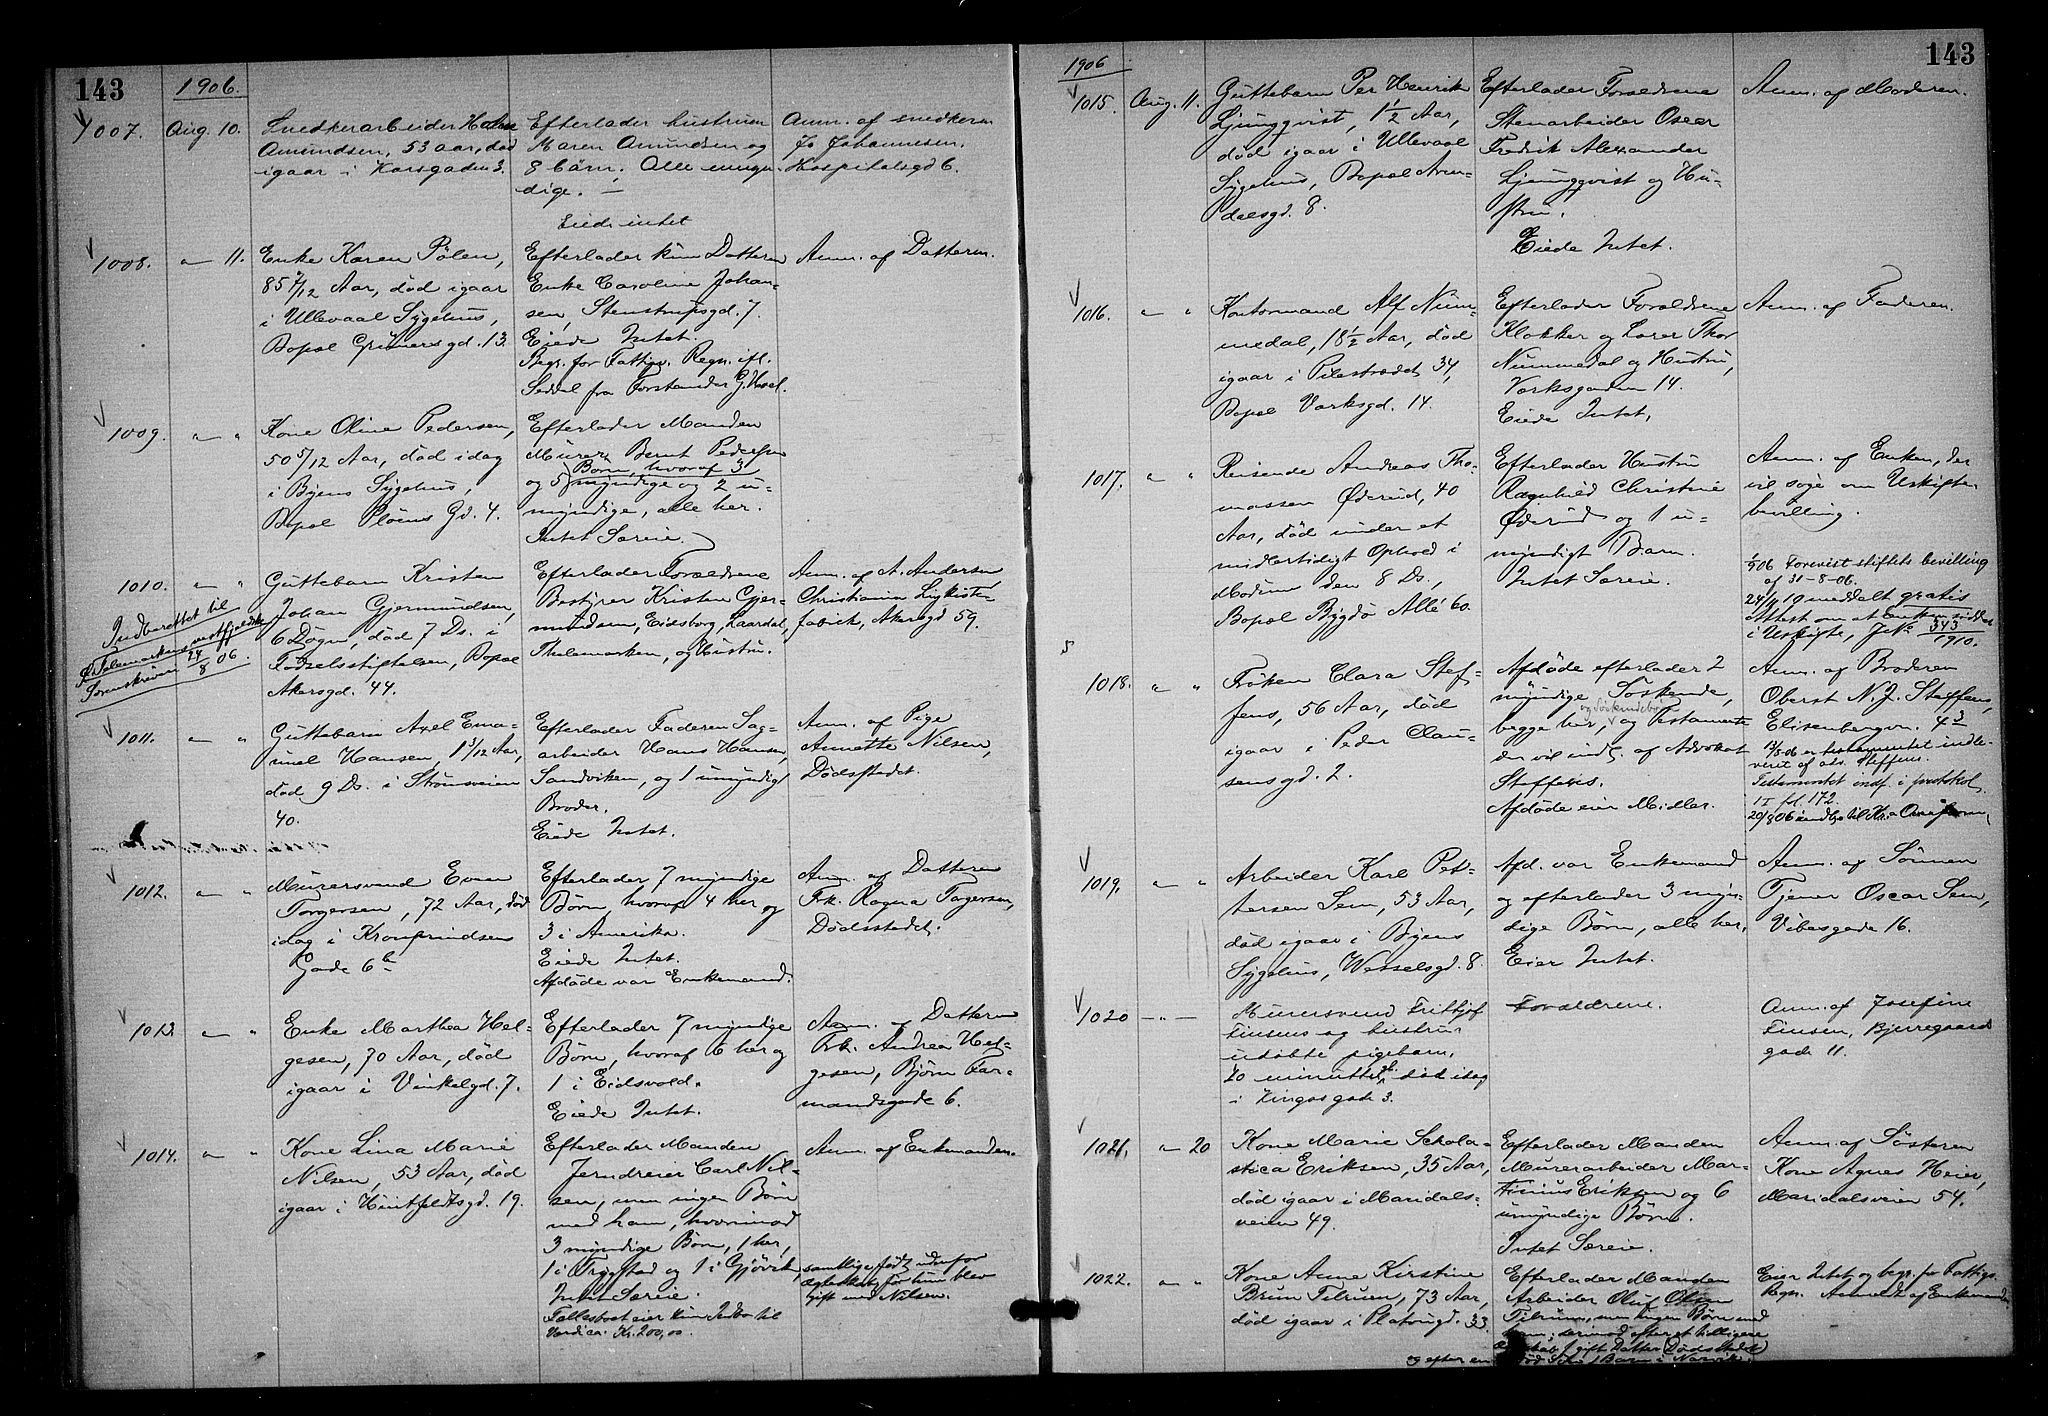 143
1906.
1007.
Aug. 10.
Snedkerarbeider Hans
Amundsen, 53 aar, død
igaar i Korsgaden 3.
Efterlader hustruen
Maren Amundsen og
8 børn. Alle myn-
dige.
Eiede intet
Anm. af snedkeren
Jo Johannesen,
Hospitalsgd 6.
1008.
" 11.
Enke Karen Pölen,
85 7/12 Aar, död igaar
i Ullevaal Sygehus,
Bopæl Grünersgd. 13.
Efterlader kun Datteren
Enke Caroline Johan-
sen, Stenstrupsgd. 7.
Eiede Intet.
Begr. for Fattigv. Regn. ifl.
Seddel fra Forstander G. Hoel.
Anm. af Datteren.
1009.
" "
Kone Oline Pedersen,
50 5/12 Aar, död idag
i Byens Sygehus,
Bopæl Pløens Gd. 4.
Efterlader Manden
Murer Bernt Pedersen
og 5 Børn, hvoraf 3
myndige og 2 u-
myndige, alle her.
Intet Særeie.
1010.
" "
Indberettet til
Telemarkens vestfjeldske
Sorenskriveri 24/8 06.
Guttebarn Kristen
Johan Gjermundsen,
6 Døgn, död 7 Ds. i
Fødselsstiftelsen, Bopæl
Akersgd. 44.
Efterlader Forældrene
Bestyrer Kristen Gjer-
mundsen, Eidsborg, Laardal,
Thelemarken, og Hustru.
Anm. af A. Andersen
Christiania Ligkiste-
fabrik, Akersgd 59.
1011.
" "
Guttebarn Axel Ema-
nuel Hansen, 1 3/12 Aar,
död 9 Ds. i Strømsveien
40.
Efterlader Faderen Sag-
arbeider Hans Hansen,
Sandviken, og 1 umyndig
Broder.
Eiede Intet.
Anm. af Pige
Annette Nilsen,
Dödsstedet.
1012.
" "
Murersvend Even
Torgersen, 72 Aar, död
idag i Kronprindsens
Gade 6b
Efterlader 7 myndige
Børn, hvoraf 4 her og
3 i Amerika.
Eiede Intet.
Afdöde var Enkemand.
Anm. af Datteren
Frk. Ragna Torgersen,
Dödsstedet.
1013.
" "
Enke Marthea Hel-
gesen, 70 Aar, död
igaar i Vinkelgd. 7.
Efterlader 7 myndige
Børn, hvoraf 6 her og
1 i Eidsvold.
Eiede Intet.
Anm. af Datteren
Frk. Andrea Hel-
gesen, Bjørn Far-
mandsgade 6.
1014.
" "
Kone Lina Marie
Nilsen, 53 Aar, död
igaar i Huitfeldtsgd. 19.
Efterlader Manden
Jerndreier Carl Nil-
sen, men ingen Børn
med ham, hvorimod
3 myndige Børn, 1 her,
1 i Trygstad og 1 i Gjøvik,
samtlige født udenfor
Ægteskab før hun blev
gift med Nilsen.
Intet Særeie.
Fællesboet eier kun Indbo til
Værdi ca. Kr. 200,00.
Anm. af Enkemanden.
143
1906
1015.
Aug. 11.
Guttebarn Per Henrik
Ljungqvist, 1 1/2 Aar,
död igaar i Ullevaal
Sygehus, Bopæl Aren-
dalsgd. 8.
Efterlader Forældrene
Stenarbeider Oscar
Fredrik Alexander
Ljungqvist og Hu-
stru.
Eiede Intet.
Anm. af Moderen.
1016.
" "
Kontormand Alf Num-
medal, 18 1/2 Aar, död
igaar i Pilestrædet 34,
BopælVærksgd. 14.
Efterlader Forældrene
Klokker og Lærer Thor
Nummedal og Hustru,
Værksgaden 14.
Eiede Intet.
Anm. af Faderen.
1017.
" "
Reisende Andreas Tho-
massen Øderud, 40
Aar, död under et
midlertidigt Ophold i
Modum den 8 Ds.,
Bopæl Bygdø Allé 60.
Efterlader Hustru
Ragnhild Christine
Øderud og 1 u-
myndigt Barn.
Intet Særeie.
Anm. af Enken, der
vil søge om Uskifte-
bevilling.
1/9 06 Forevist stiftets bevilling
af 31-8-06.
24/9 10 meddelt gratis
Attest om at Enken sidder
i Uskifte, J.№ 343/1910.
1018.
" "
Frøken Clara Stef-
fens, 56 Aar, död
igaar i Peder Clau-
sensgd. 2.
Afdöde efterlader 2
myndige Søskende,
begge her, og Søskendebørn og Testamente
der vil indl. af Advokat
Steffens.
Afdöde eier Midler.
Anm. af Broderen
Oberst N. J. Steffens,
Elisenbergvn. 4.
13/8 06 er testamentet indle-
veret af adv. Steffens.
Testamentet indf. i protokol
1 I fol. 172.
1019.
" "
Arbeider Karl Pet-
tersen Sem, 53 Aar,
död igaar i Byens
Sygehus, Wesselsgd. 8.
Afd. var Enkemand
og efterlader 3 myn-
dige Børn, alle her.
Eier Intet.
Anm. af Sønnen
Tjener Oscar Sem,
Vibesgade 16.
1020
" "
Murersvend Frithjof
Finsens og hustrus
udøbte pigebarn,
20 minutter, død idag
i Kingosgade 3.
Forældrene.
Anm. af Josefine
Finsen, Bjerregaards
gade 11.
1021.
" 20
Kone Marie Schola-
stica Eriksen, 35 Aar,
död igaar i Maridals-
veien 49.
Efterlader Manden
Murerarbeider Mar-
tinius Eriksen og 6
umyndige Børn.
Intet Særeie.
Anm. af Søsteren
Kone Agnes Heier,
Maridalsveien 54.
1022.
" "
Kone Anne Kirstine
Brun Tilrum, 73 Aar,
död igaar i Platougd. 33.
Efterlader Manden
Arbeider Oluf Olsen
Tilrum, men ingen Børn med
ham; derimod efter et tidligere
1 gift Datter (Dødsstedet)
og efter en død Søn 1 Barn i Narvik.
Eier Intet og begr. for Fattigv.
Regn. Anmeldt af Enkemanden.